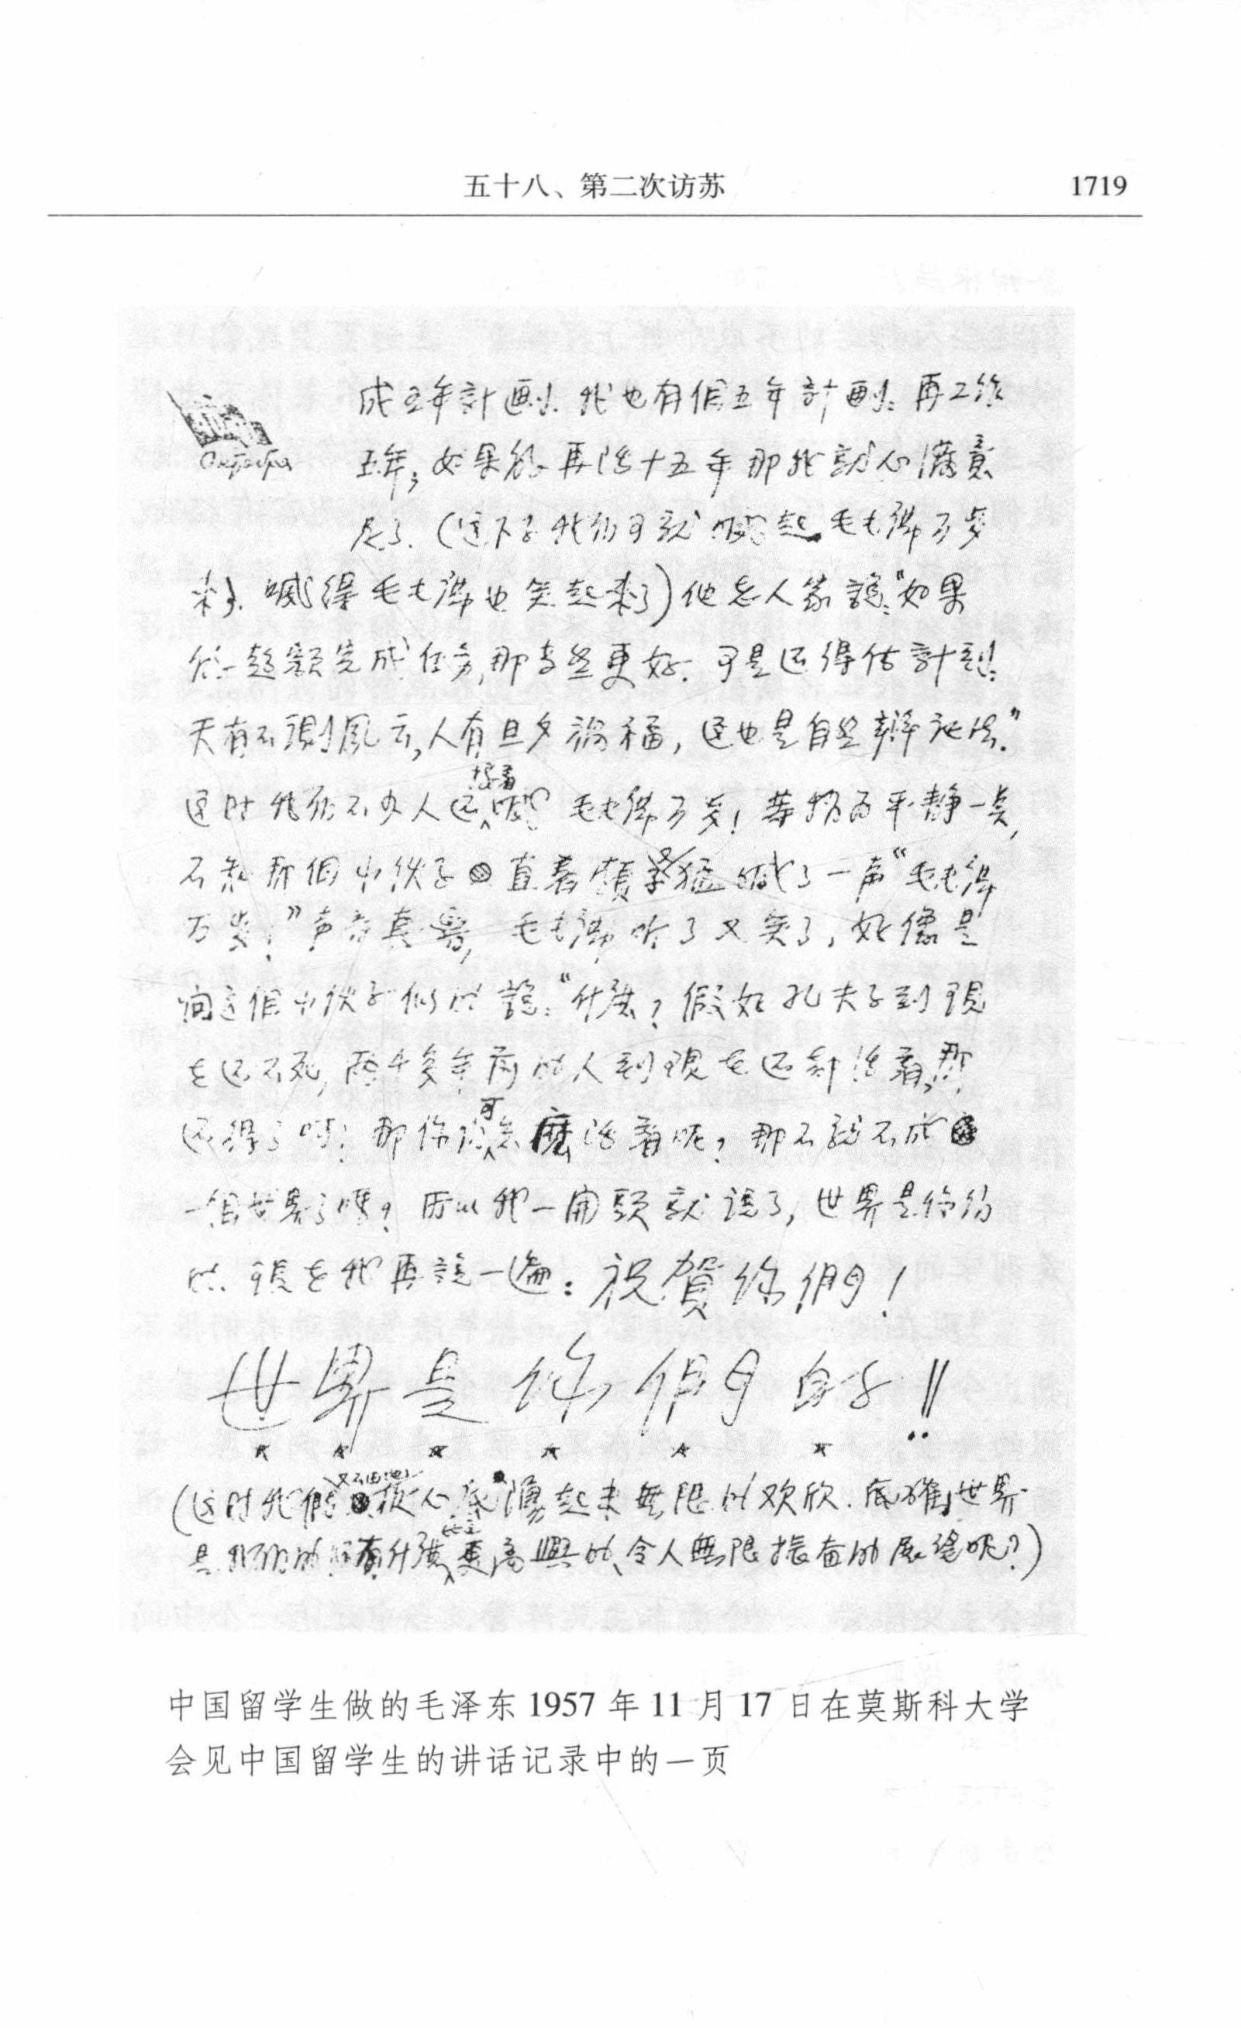 五十八、第二次访苏 1719
成五年計画。我也有個五年計画：再工作
五年，如果能再活十五年那我就心满意
足了。（这下子我们可就喊起毛主席万岁
来了。喊得毛主席也笑起来了）他老人家說：“如果
能超額完成任务，那当然更好。可是还得估計到：
天有不測風云，人有旦夕祸福，这也是自然辯証法。”
这时我们不少人还接着喊 毛主席万岁！等稍为平静一点，
不知那個小伙子直着嗓子猛喊了一声“毛主席
万岁！”声音真響，毛主席听了又笑了，好像是
向这個小伙子似的說：“什么？假如孔夫子到現
在还不死，两千多年前的人到現在还都活着，那
还得了呵！那你们可怎麼活着呢？那不就不成
一個世界了嗎？所以我一開頭就說了，世界是你们
的。現在我再說一遍：祝賀你們！
世界是你們的！！
（这时我們又不由地從心底湧起来無限的欢欣。底確，世界
是我们的，还有什么比这更高興的、令人無限振奋的展望呢？）
中国留学生做的毛泽东1957年11月17日在莫斯科大学
会见中国留学生的讲话记录中的一页